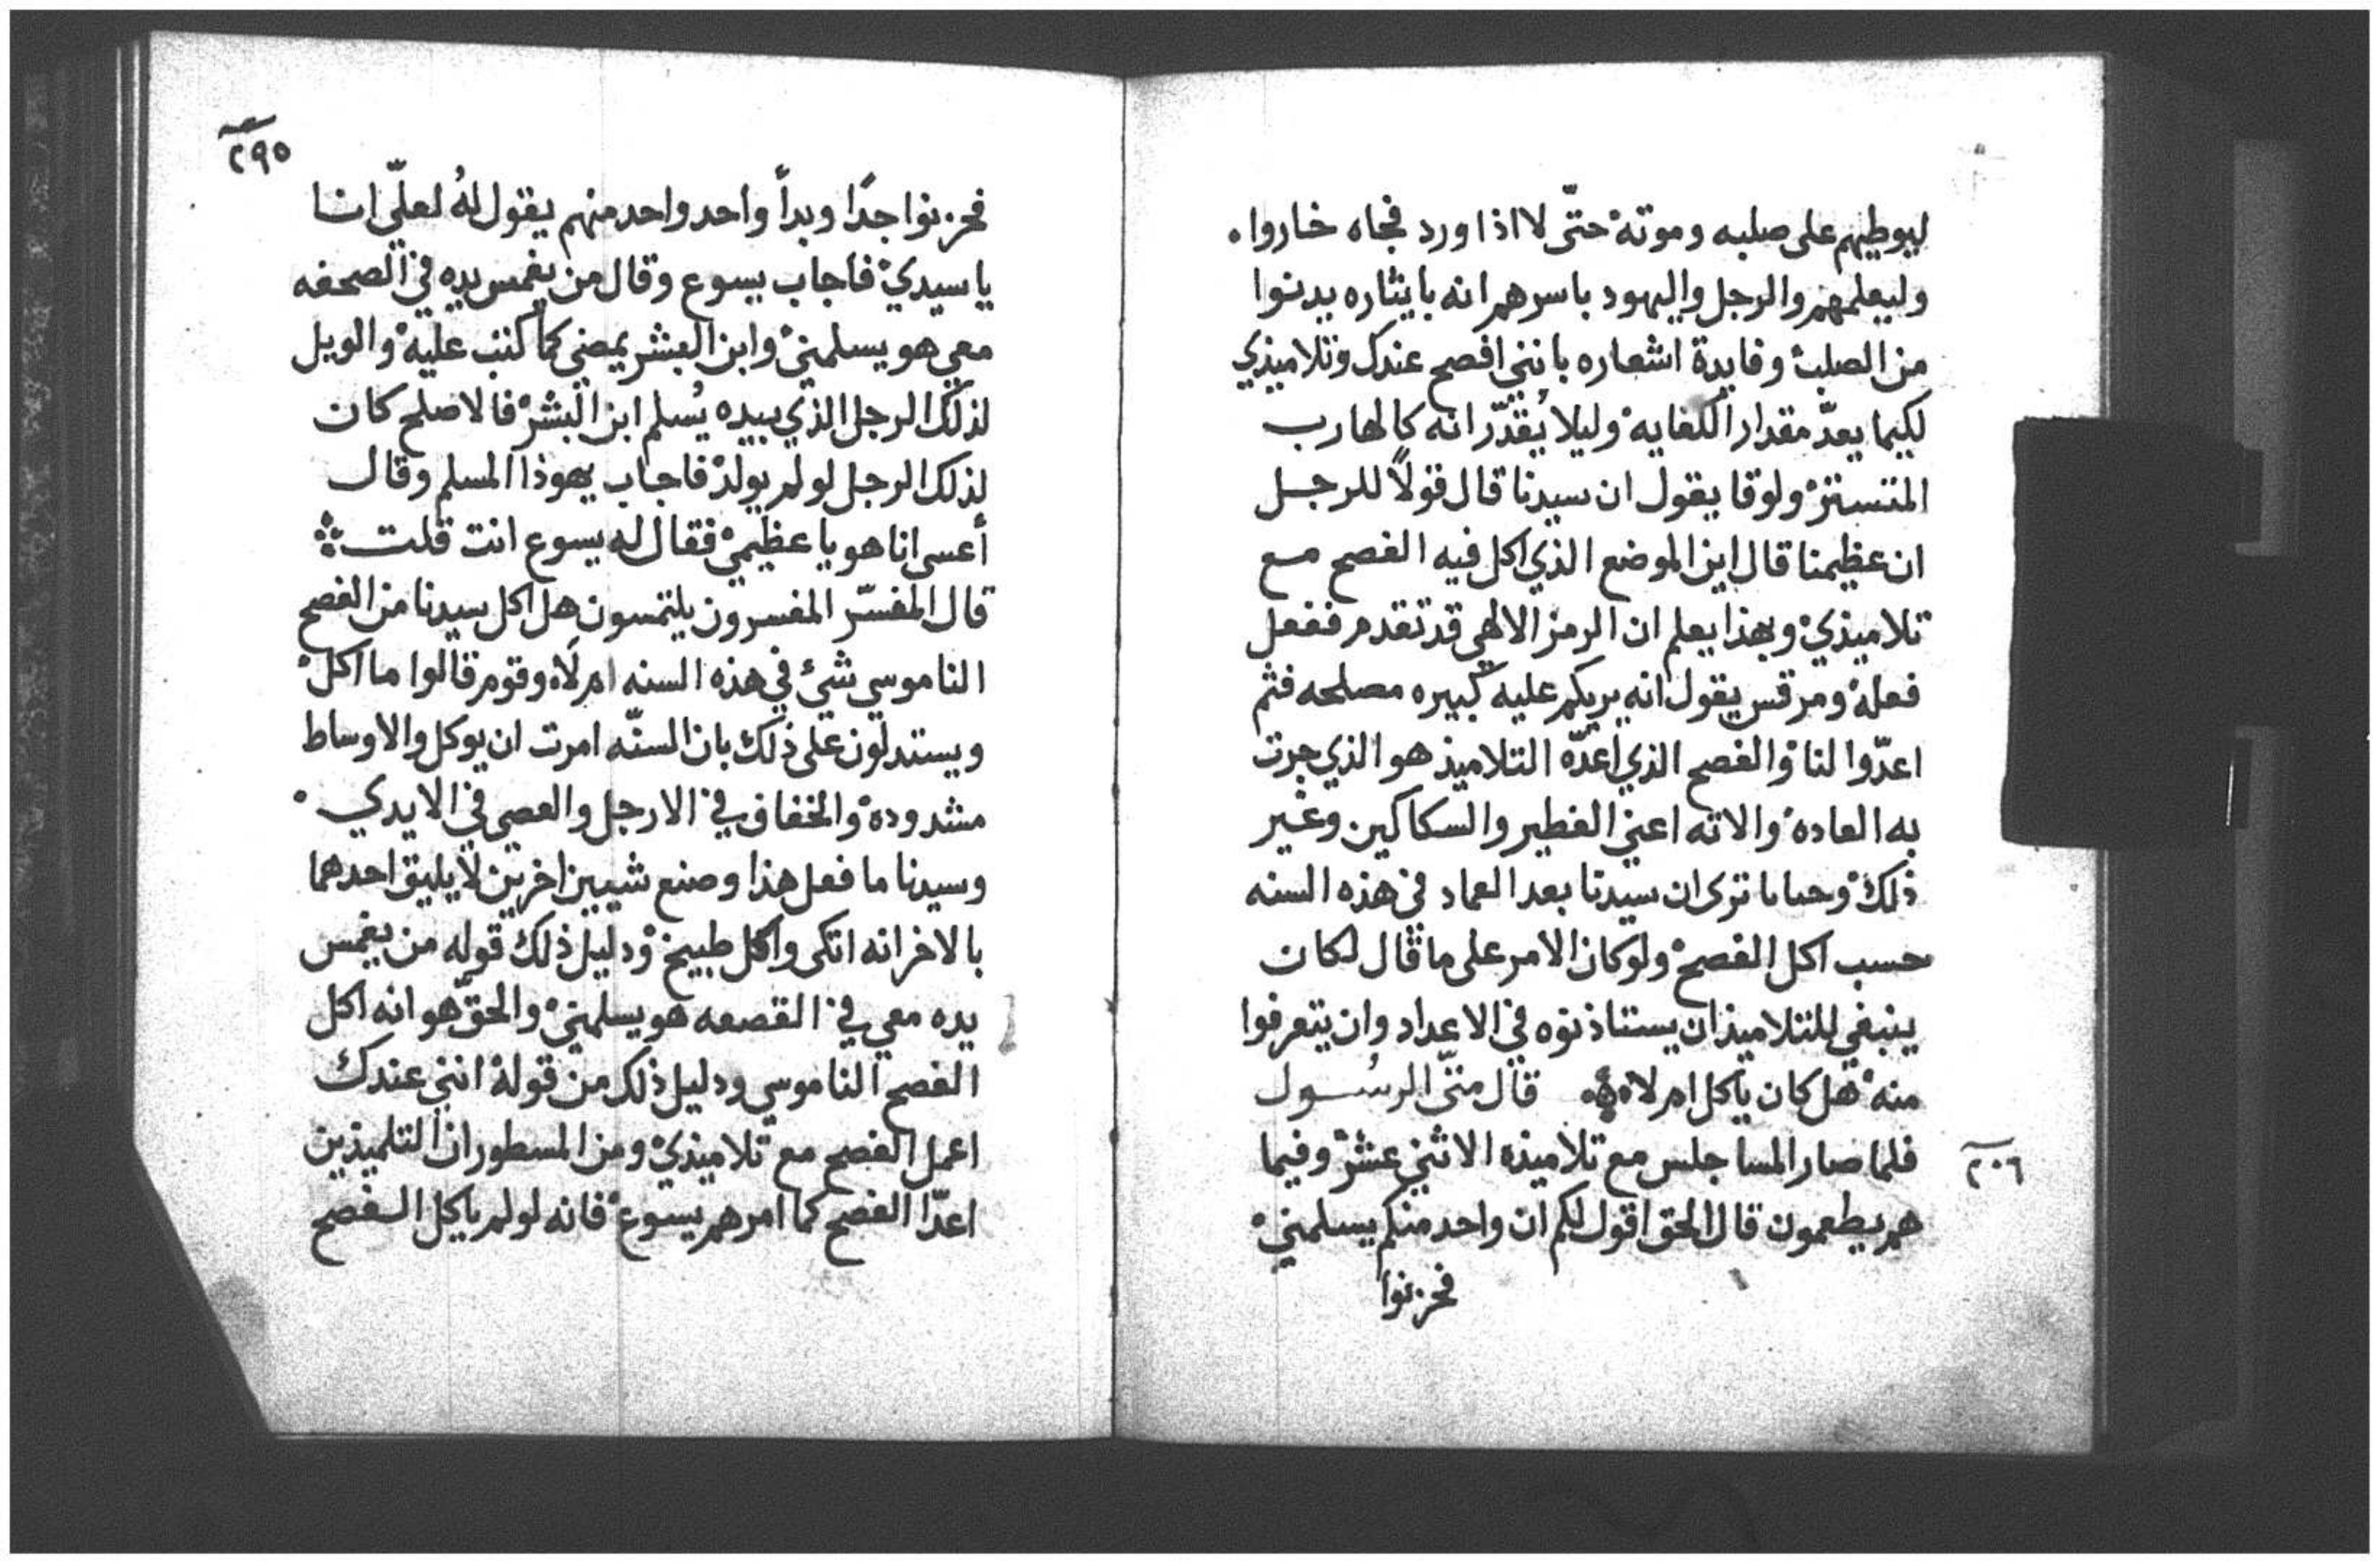 ليوطيهم على صلبه وموته حتّى لا اذا ورد فجاه خاروا
وليعلمهم والرجل واليهود باسرهم انه بايثاره يدنوا
من الصلب وفايدة اشعاره بانني افصح عندك وتلاميذي
لكيما يعدّ مقدار الكفايه وليلا يُقدّر انه كالهارب
المتستتر ولوقا يقول ان سيدنا قال قولاً للرجل
ان عظيمنا قال اين الموضع الذي اكل فيه الفصح مع
تلاميذي وبهذا يعلم ان الرمز الالهي قد تقدم ففعل
فعله ومرقس يقول انه يريكم عليه كبيره مصلحه فثم
اعدّوا لنا والفصح الذي اعدّه التلاميذ هو الذي جرت
به العاده والاته اعني الفطير والسكاكين وغير
ذلك ترى ان سيدنا بعد العماد في هذه السنه
حسب اكل الفصح ولو كان الامر على ما قال لكان
ينبغي للتلاميذ ان يستاذنوه في الاعداد وان يتعرفوا
منه هل كان ياكل ام لا قال متّى الرسُول
فلما صار المسا جلس مع تلاميذه الاثني عشر وفيما
٢٠٦
هم يطعمون قال الحق اقول لكم ان واحد منكم يسلمني
فحزنوا
٢٩٥
فحزنوا جدًا وبدأ واحد واحد منهم يقول لهُ لعلّي انا
يا سيدي فاجاب يسوع وقال من يغمس يده في الصحفه
معي هو يسلمني وابن البشر يمضي كما كتب عليه والويل
لذلك الرجل الذي بيده يُسلم ابن البشر فالاصلح كان
لذلك الرجل لو لم يولد فاجاب يهوذا المسلم وقال
أعسى انا هو يا عظيمي فقال له يسوع انت قلت
قال المفسّر المفسرون يلتمسون هل اكل سيدنا من الفصح
الناموسي شئ في هذه السنه ام لا وقوم قالوا ما اكل
ويستدلون على ذلك بان السنّه امرت ان يوكل والاوساط
مشدوده والخفاف في الارجل والعصي في الايدي
وسيدنا ما فعل هذا وصنع شيين اخرين لا يليق احدهما
بالاخر انه اتكى واكل طبيخ ودليل ذلك قوله من يغمس
يده معي في القصعه هو يسلمني والحقّ هو انه اكل
الفصح الناموسي ودليل ذلك من قوله انني عندك
اعمل الفصح مع تلاميذي ومن المسطور ان التلميذين
اعدّا الفصح كما امرهم يسوع فانه لو لم ياكل الفصح